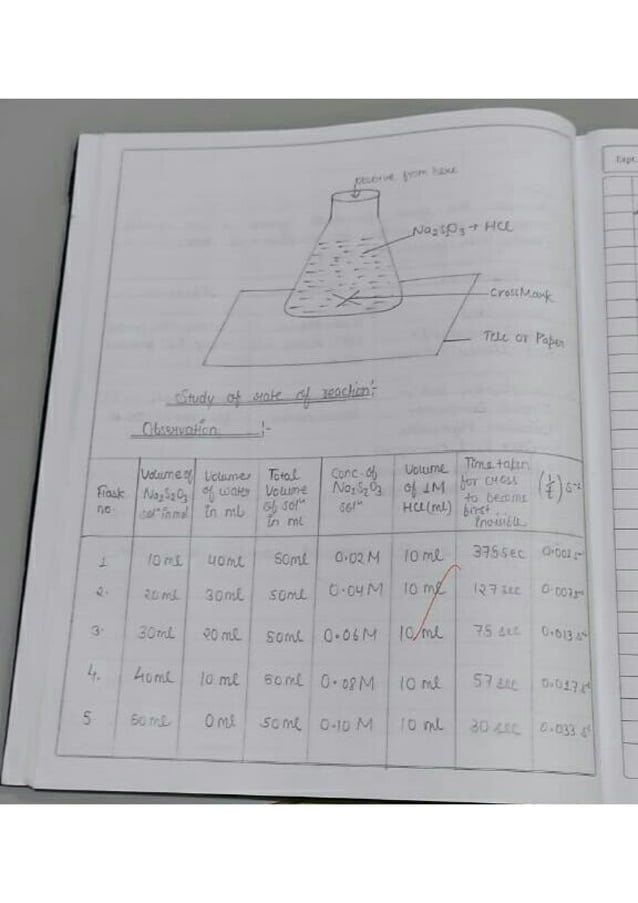 observe from here
Na2S2O3 + HCl
CrossMark
Tile or Paper
Study of rate of reaction:-
Observation :-
Flask no. | Volume of Na2S2O3 solⁿ in ml | Volume of water in mL | Total Volume of solⁿ in mL | Conc. of Na2S2O3 solⁿ | Volume of 1M HCl (ml) | Time taken for cross to become first invisible | (1/t) s⁻¹
1 | 10 ml | 40 ml | 50 ml | 0.02 M | 10 ml | 375 sec | 0.002 s⁻
2. | 20 ml | 30 ml | 50 ml | 0.04 M | 10 ml | 127 sec | 0.007 s⁻
3. | 30 ml | 20 ml | 50 ml | 0.06 M | 10 ml | 75 sec | 0.013 s⁻
4. | 40 ml | 10 ml | 50 ml | 0.08 M | 10 ml | 57 sec | 0.017 s⁻
5 | 50 ml | 0 ml | 50 ml | 0.10 M | 10 ml | 30 sec | 0.033 s⁻
Expt.